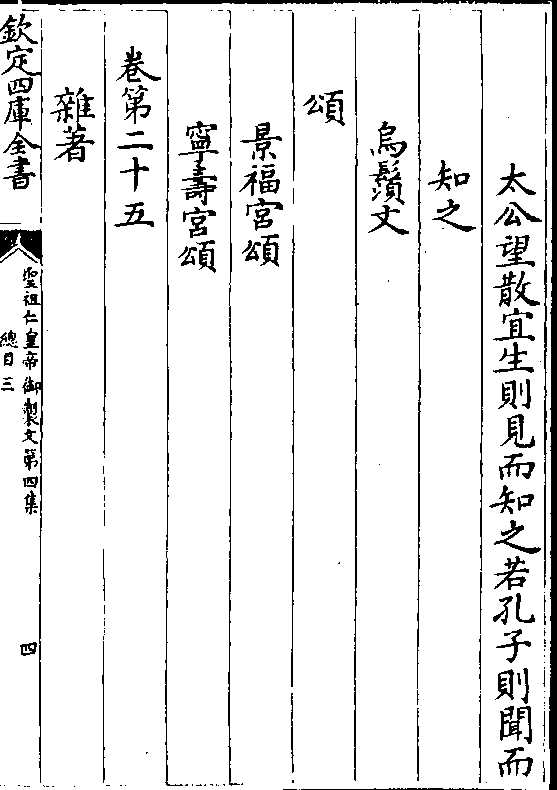 太公望散宜生則見而知之若孔子則聞而
知之
烏鬚文
頌
景福宮頌
寧壽宮頌
卷第二十五
雜著
欽定四庫全書
聖祖仁皇帝御製文第四集
總目三
四